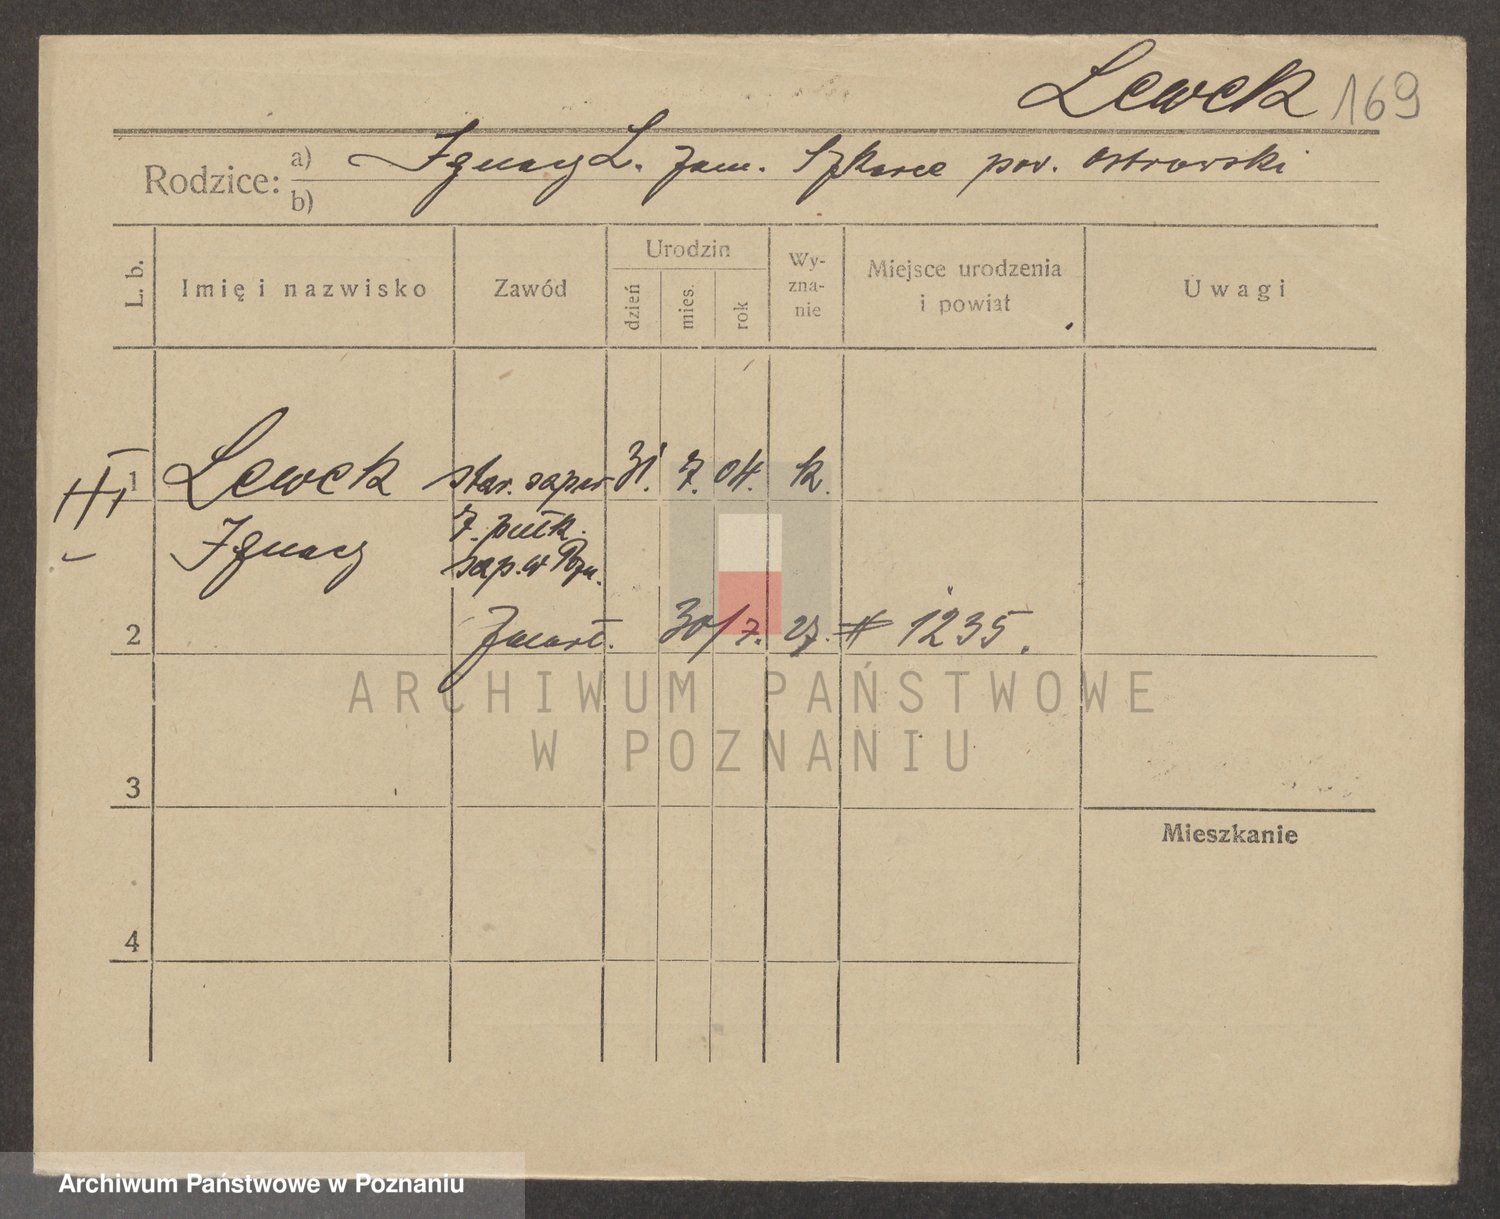 Lewek 169
Rodzice: a) Ignacy L. zam. pow. ostrowski
b)
L. b.
Imię i nazwisko
Zawód
Urodzin
dzień
mies.
rok
Wy-
zna-
nie
Miejsce urodzenia
i powiat
Uwagi
III 1 Lewek star. saper 31. 7. 04. k.
Ignacy 7. pułk.
sap. w Pozn.
2 Zmarł. 30/7. 27. # 1235.
ARCHIWUM PAŃSTWOWE
W POZNANIU
3
Mieszkanie
4
Archiwum Państwowe w Poznaniu